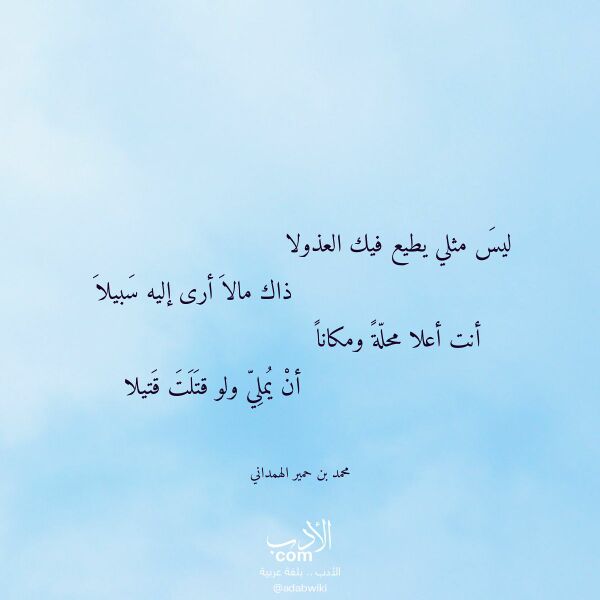 ليسَ مثلي يطيع فيك العذولا
ذاك مالاَ أرى إليه سَبيلاَ
أنت أعلا محلّةً ومكاناً
أنْ يُملِيّ ولو قتَلَتَ قَتيلا
محمد بن حمير الهمداني
الأدب
.com
الأدب .. بلغة عربية
@adabwiki